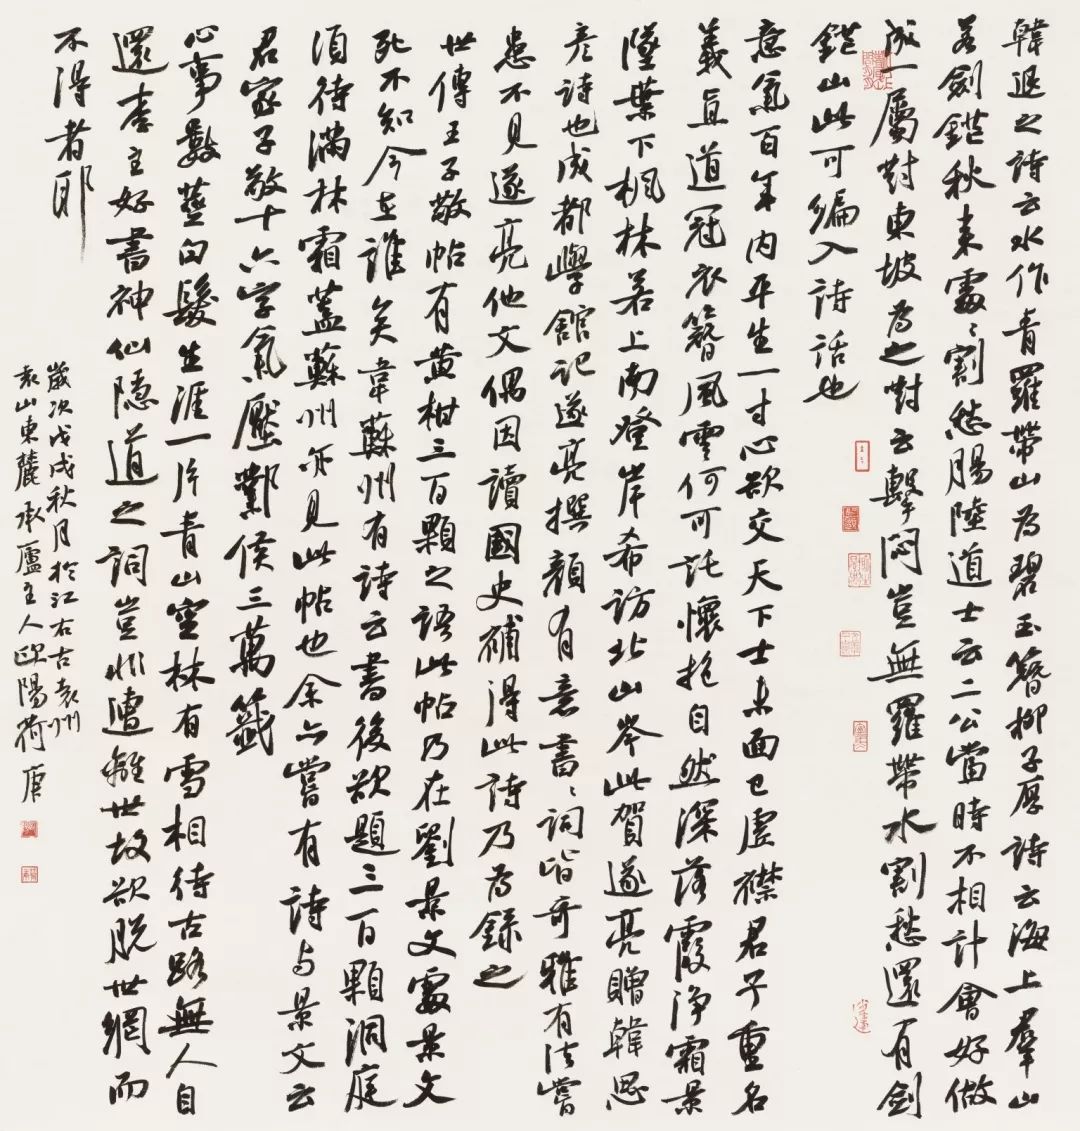 韓退之詩云水作青羅帶山為碧玉簪柳子厚詩云海上羣山
若劍鋩秋來處〻割愁腸陸道士云二公當時不相計會好做
成一屬對東坡為之對云繫悶豈無羅帶水割愁還有劍
鋩山此可編入詩話也
意氣百年內平生一寸心欲交天下士未面已虛襟君子重名
義直道冠衣簪風雲何可託懷抱自然深落霞淨霜景
墜葉下楓林若上南登岸希訪北山岑此賀遂亮贈韓思
彥詩也成都學館記遂亮撰顏有意書〻詞皆奇雅有法嘗
患不見遂亮他文偶因讀國史補得此詩乃為錄之
世傳王子敬帖有黃柑三百顆之語此帖乃在劉景文處景文
死不知今在誰矣韋蘇州有詩云書後欲題三百顆洞庭
須待滿林霜蓋蘇州亦見此帖也余亦嘗有詩與景文云
君家子敬十六字氣壓鄴侯三萬籤
心事數莖白髮生涯一片青山空林有雪相待古路無人自
還李主好書神仙隱道之詞豈非遭離世故欲脫世網而
不得者耶
歲次戊戌秋月於江右古袁州
袁山東麓承廬主人歐陽荷庚